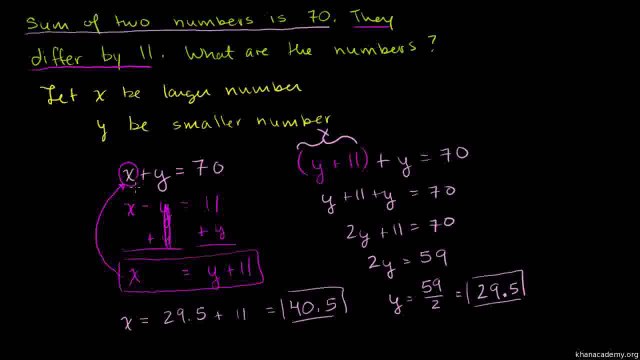 Sum of two numbers is 70. They
differ by 11. What are the numbers?
Let x be larger number
y be smaller number
x + y = 70
x - y = 11
+ y + y
x = y + 11
x = 29.5 + 11 = 40.5
x
(y + 11) + y = 70
y + 11 + y = 70
2y + 11 = 70
2y = 59
y = 59/2 = 29.5
khanacademy.org